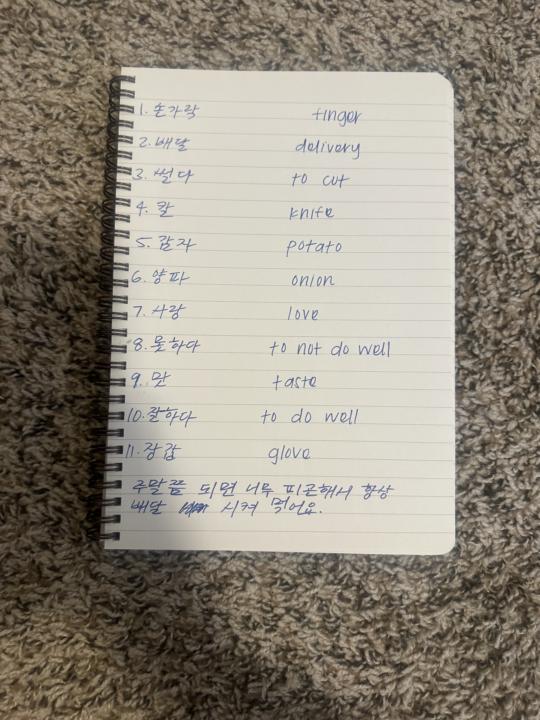 1. 손가락 finger
2. 배달 delivery
3. 썰다 to cut
4. 칼 knife
5. 감자 potato
6. 양파 onion
7. 사랑 love
8. 못하다 to not do well
9. 맛 taste
10. 잘하다 to do well
11. 장갑 glove
주말쯤 되면 너무 피곤해서 항상
배달 시켜 먹어요.